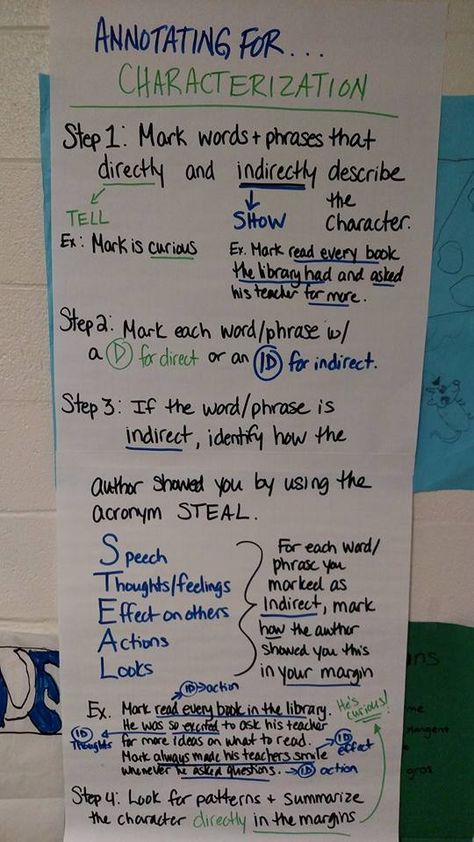 ANNOTATING FOR...
CHARACTERIZATION
Step 1: Mark words + phrases that
directly and indirectly describe
the
character.
TELL
Ex: Mark is curious
SHOW
Ex. Mark read every book
the library had and asked
his teacher for more.
Step 2: Mark each word/phrase w/
a D for direct or an ID for indirect.
Step 3: If the word/phrase is
indirect, identify how the
author showed you by using the
acronym STEAL.
Speech
Thoughts/feelings
Effect on others
Actions
Looks
For each word/
phrase you
marked as
Indirect, mark
how the author
showed you this
in your margin
ID → action
Ex. Mark read every book in the library.
He was so excited to ask his teacher
for more ideas on what to read.
Mark always made his teachers smile
whenever he asked questions.
ID
Thoughts
ID
effect
ID action
He's
curious!
Step 4: Look for patterns + summarize
the character directly in the margins